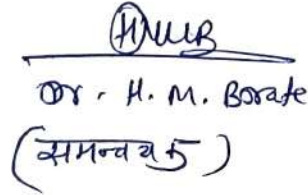 Dr. H. M. Borate
(समन्वयक)